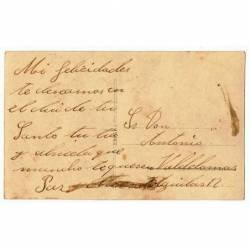 Mil felicidades
te deseamos en
el dia de tu
Santo tu tia
y abuela que
mucho te quieren
Sr Don
Antonio
Valdelomar